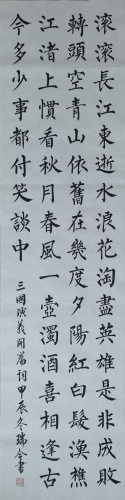 滾滾長江東逝水浪花淘盡英雄是非成敗
轉頭空青山依舊在幾度夕陽紅白髮漁樵
江渚上慣看秋月春風一壺濁酒喜相逢古
今多少事都付笑談中
三國演義開篇詞甲辰冬瑞書